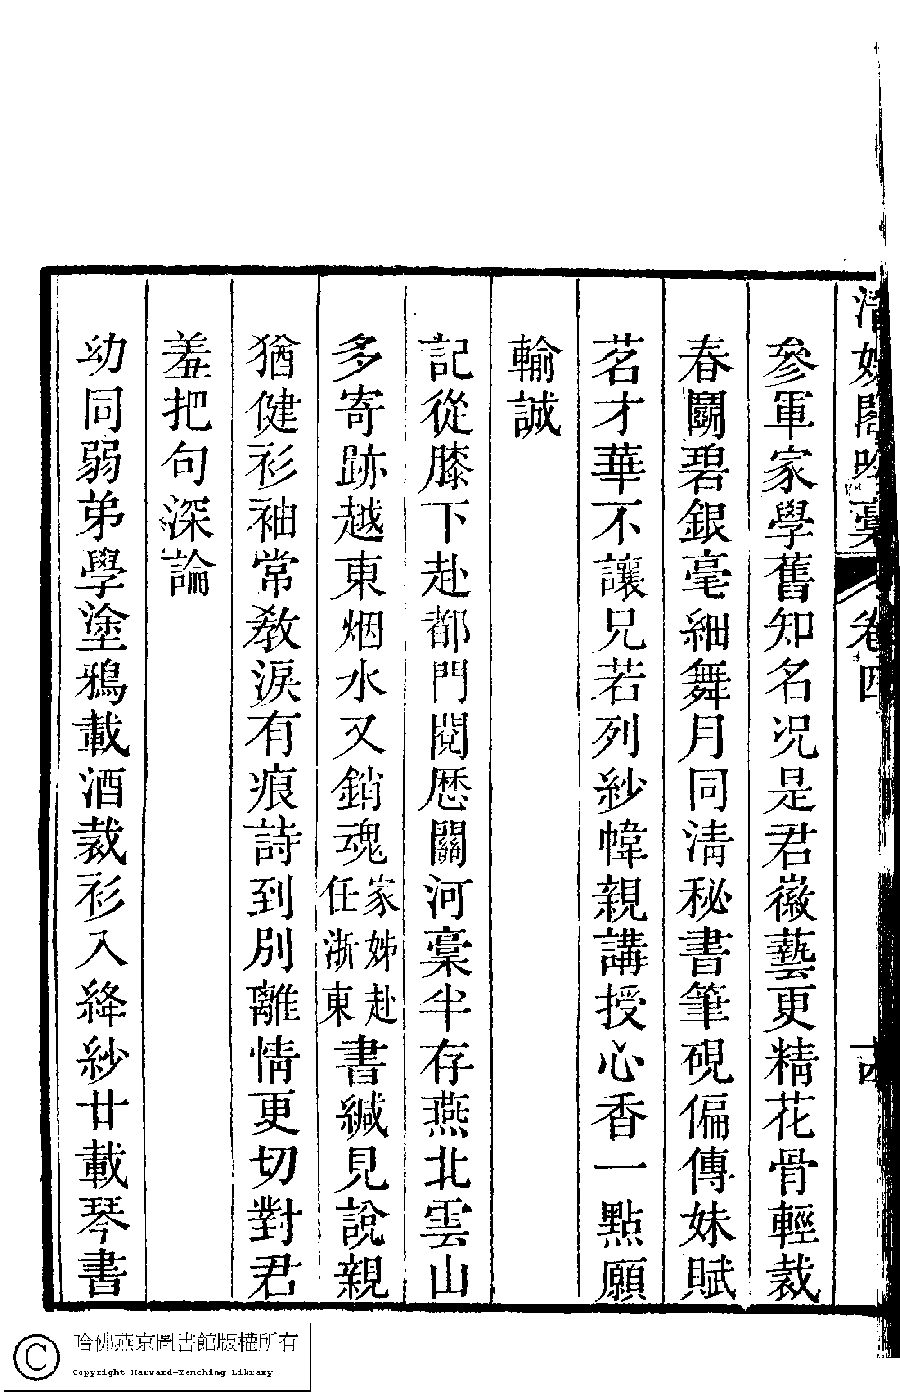 清娛閣吟稾 卷四 十四
參軍家學舊知名况是君徽藝更精花骨輕裁
春鬬碧銀毫細舞月同清秘書筆硯偏傳妹賦
茗才華不讓兄若列紗幃親講授心香一點願
輸誠
記從膝下赴都門閱歷關河稾半存燕北雲山
多寄跡越東烟水又銷魂家姊赴任浙東書緘見說親
猶健衫袖常教淚有痕詩到別離情更切對君
羞把句深論
幼同弱弟學塗鴉載酒裁衫入絳紗廿載琴書
哈佛燕京圖書館版權所有
Copyright Harvard-Yenching Library